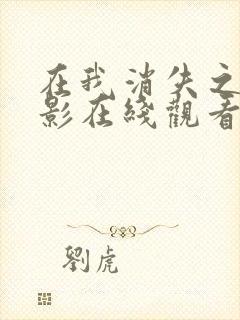 在我消失之
影在綫觀看
劉虎